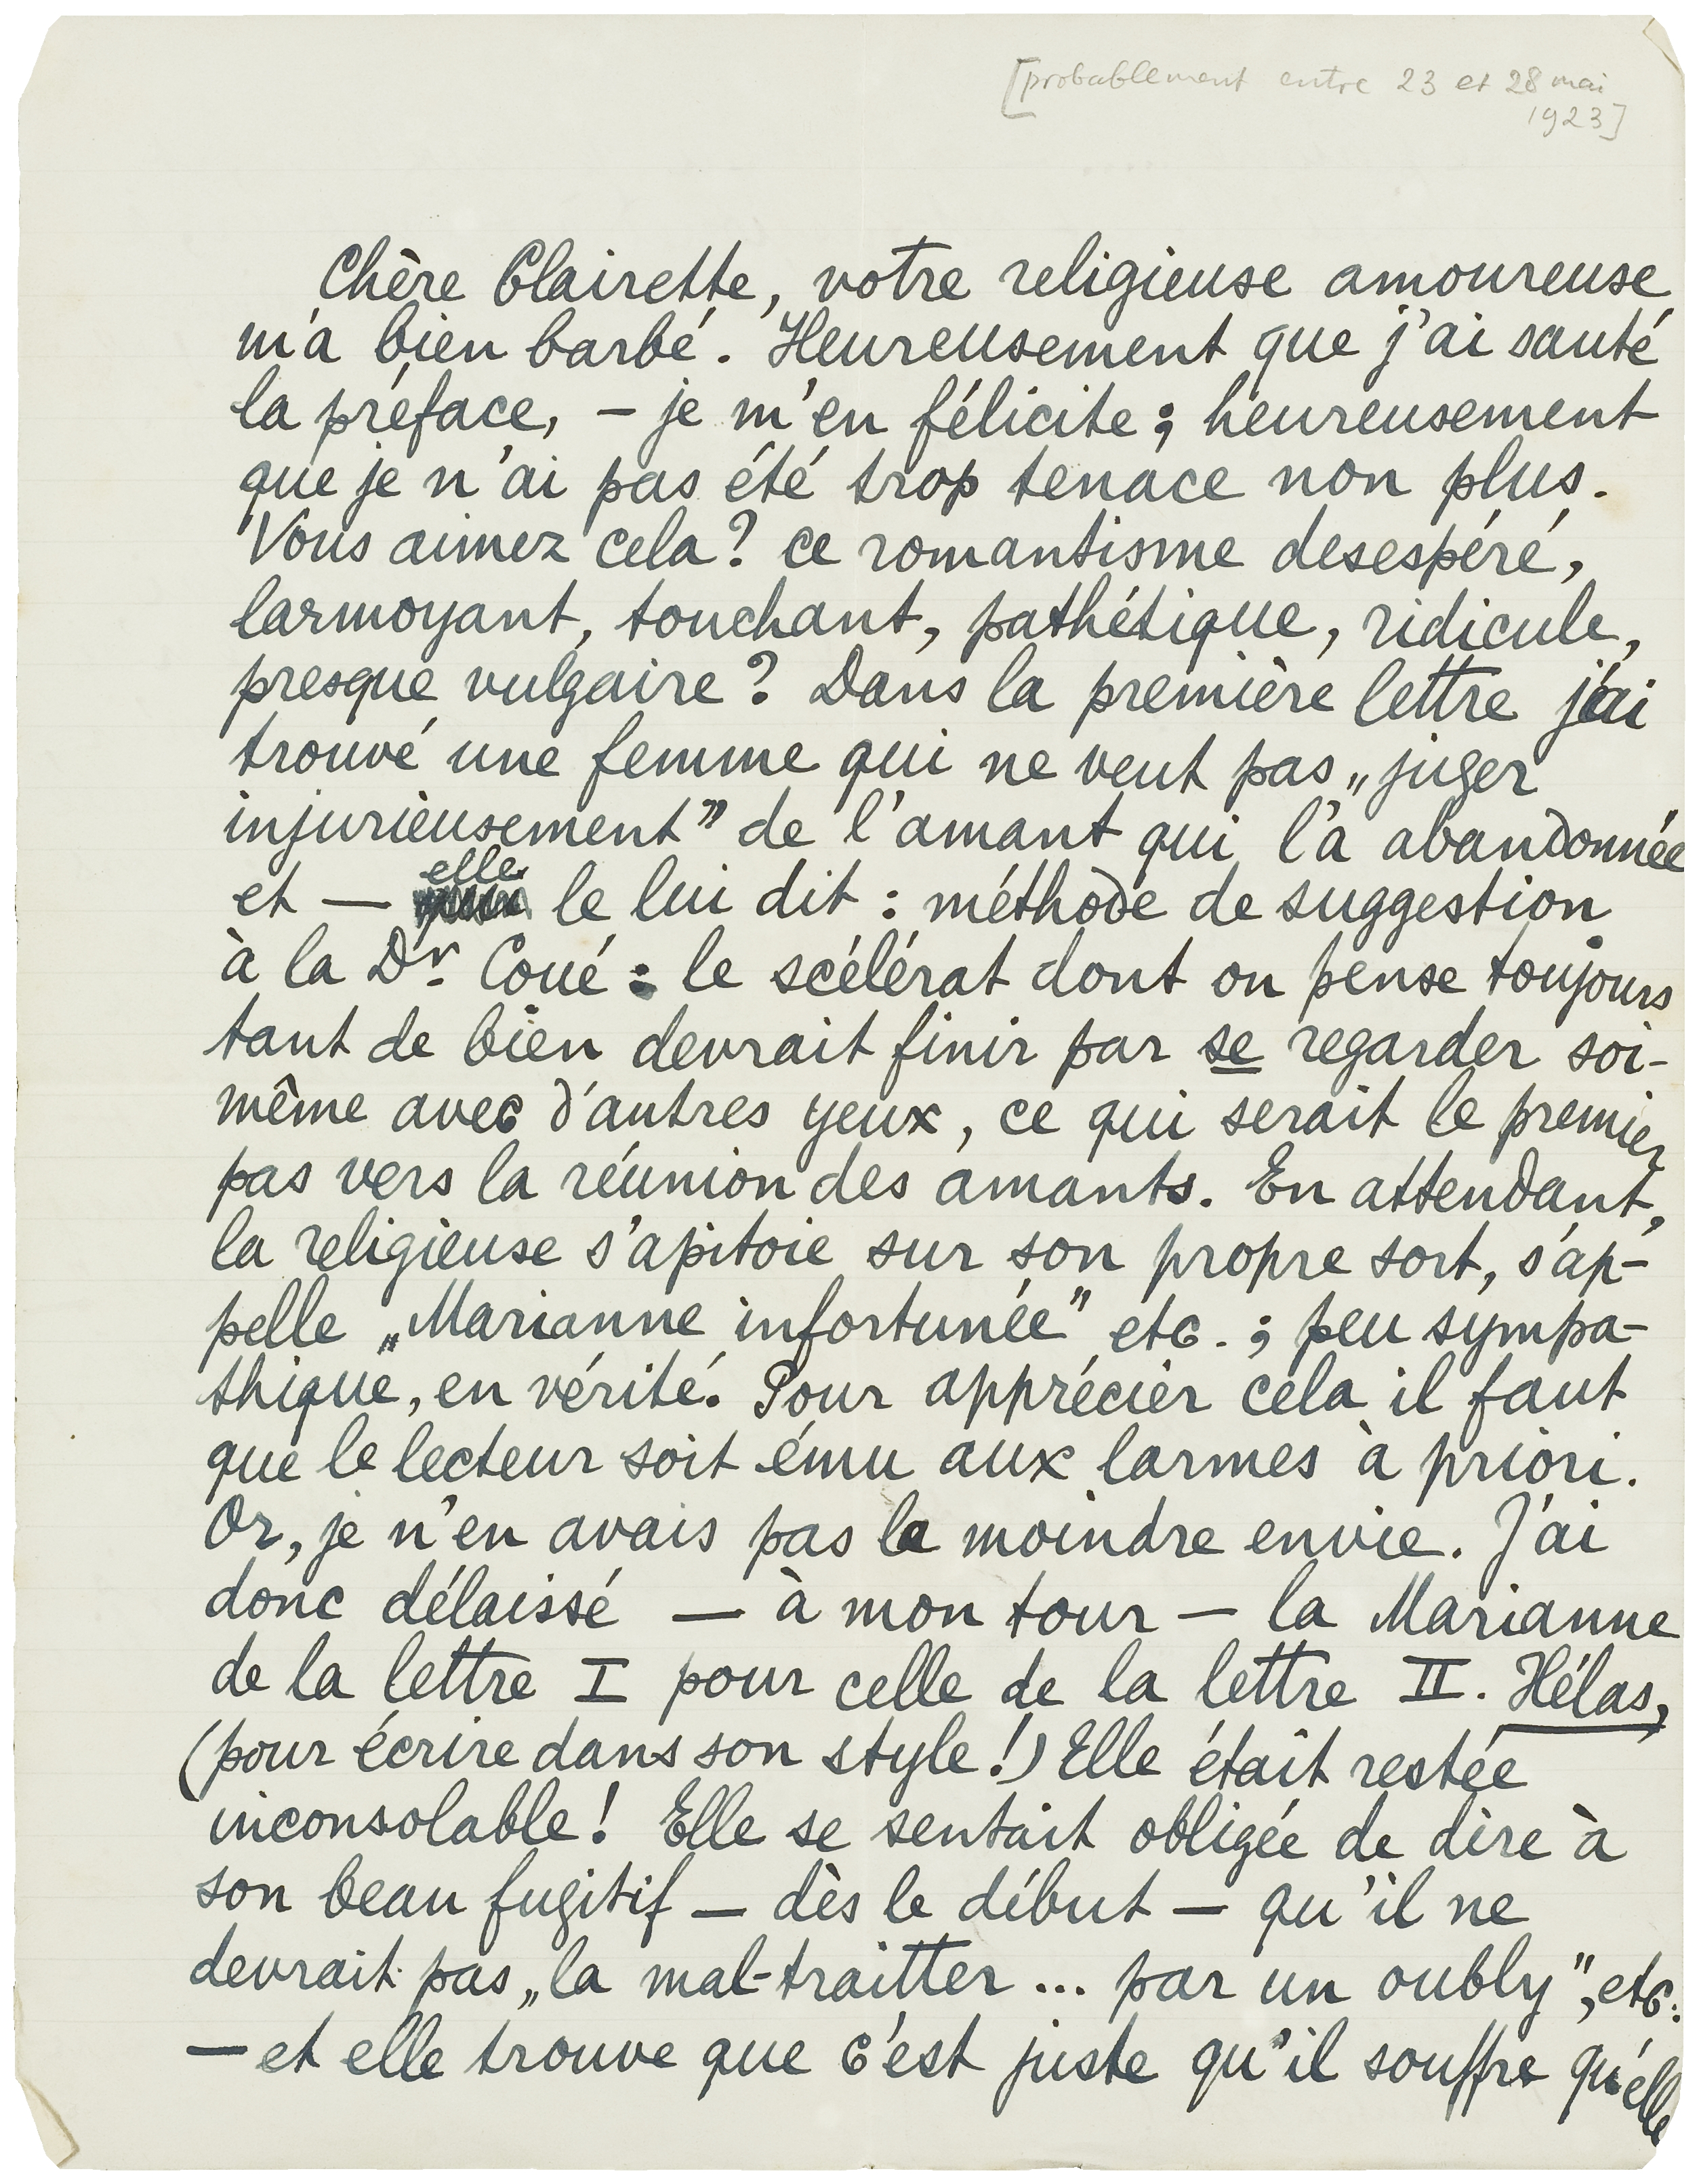 [probablement entre 23 et 28 mai
1923]
Chère Clairette, votre religieuse amoureuse
m'a bien barbé. Heureusement que j'ai sauté
la préface, – je m'en félicite; heureusement
que je n'ai pas été trop tenace non plus.
Vous aimez cela? ce romantisme desespéré,
larmoyant, touchant, pathétique, ridicule,
presque vulgaire? Dans la première lettre j'ai
trouvé une femme qui ne veut pas „juger
injurieusement” de l'amant qui l'a abandonnée
et — elle le lui dit : méthode de suggestion
à la Dr. Coué : le scélérat dont on pense toujours
tant de bien devrait finir par se regarder soi-
même avec d'autres yeux, ce qui serait le premier
pas vers la réunion des amants. En attendant,
la religieuse s'apitoie sur son propre sort, s'ap-
pelle „Marianne infortunée” etc. ; peu sympa-
thique, en vérité. Pour apprécier cela il faut
que le lecteur soit ému aux larmes à priori.
Or, je n'en avais pas la moindre envie. J'ai
donc délaissé — à mon tour — la Marianne
de la lettre I pour celle de la lettre II. Hélas,
(pour écrire dans son style!) Elle était restée
inconsolable! Elle se sentait obligée de dire à
son beau fugitif — dès le début — qu'il ne
devrait pas „la mal-traitter ... par un oubly”, etc.
— et elle trouve que c'est juste qu'il souffre qu'elle